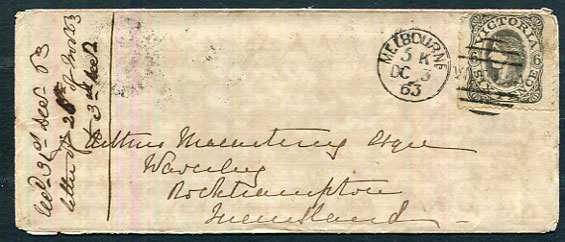 Recd 31st Decr 63
letter of 28th of Novr 63
& 3rd Decr
MELBOURNE
5 K
DC 3
63
VICTORIA
6 6
SIX PENCE
Esqre
Waverley
Rockhampton
Queensland